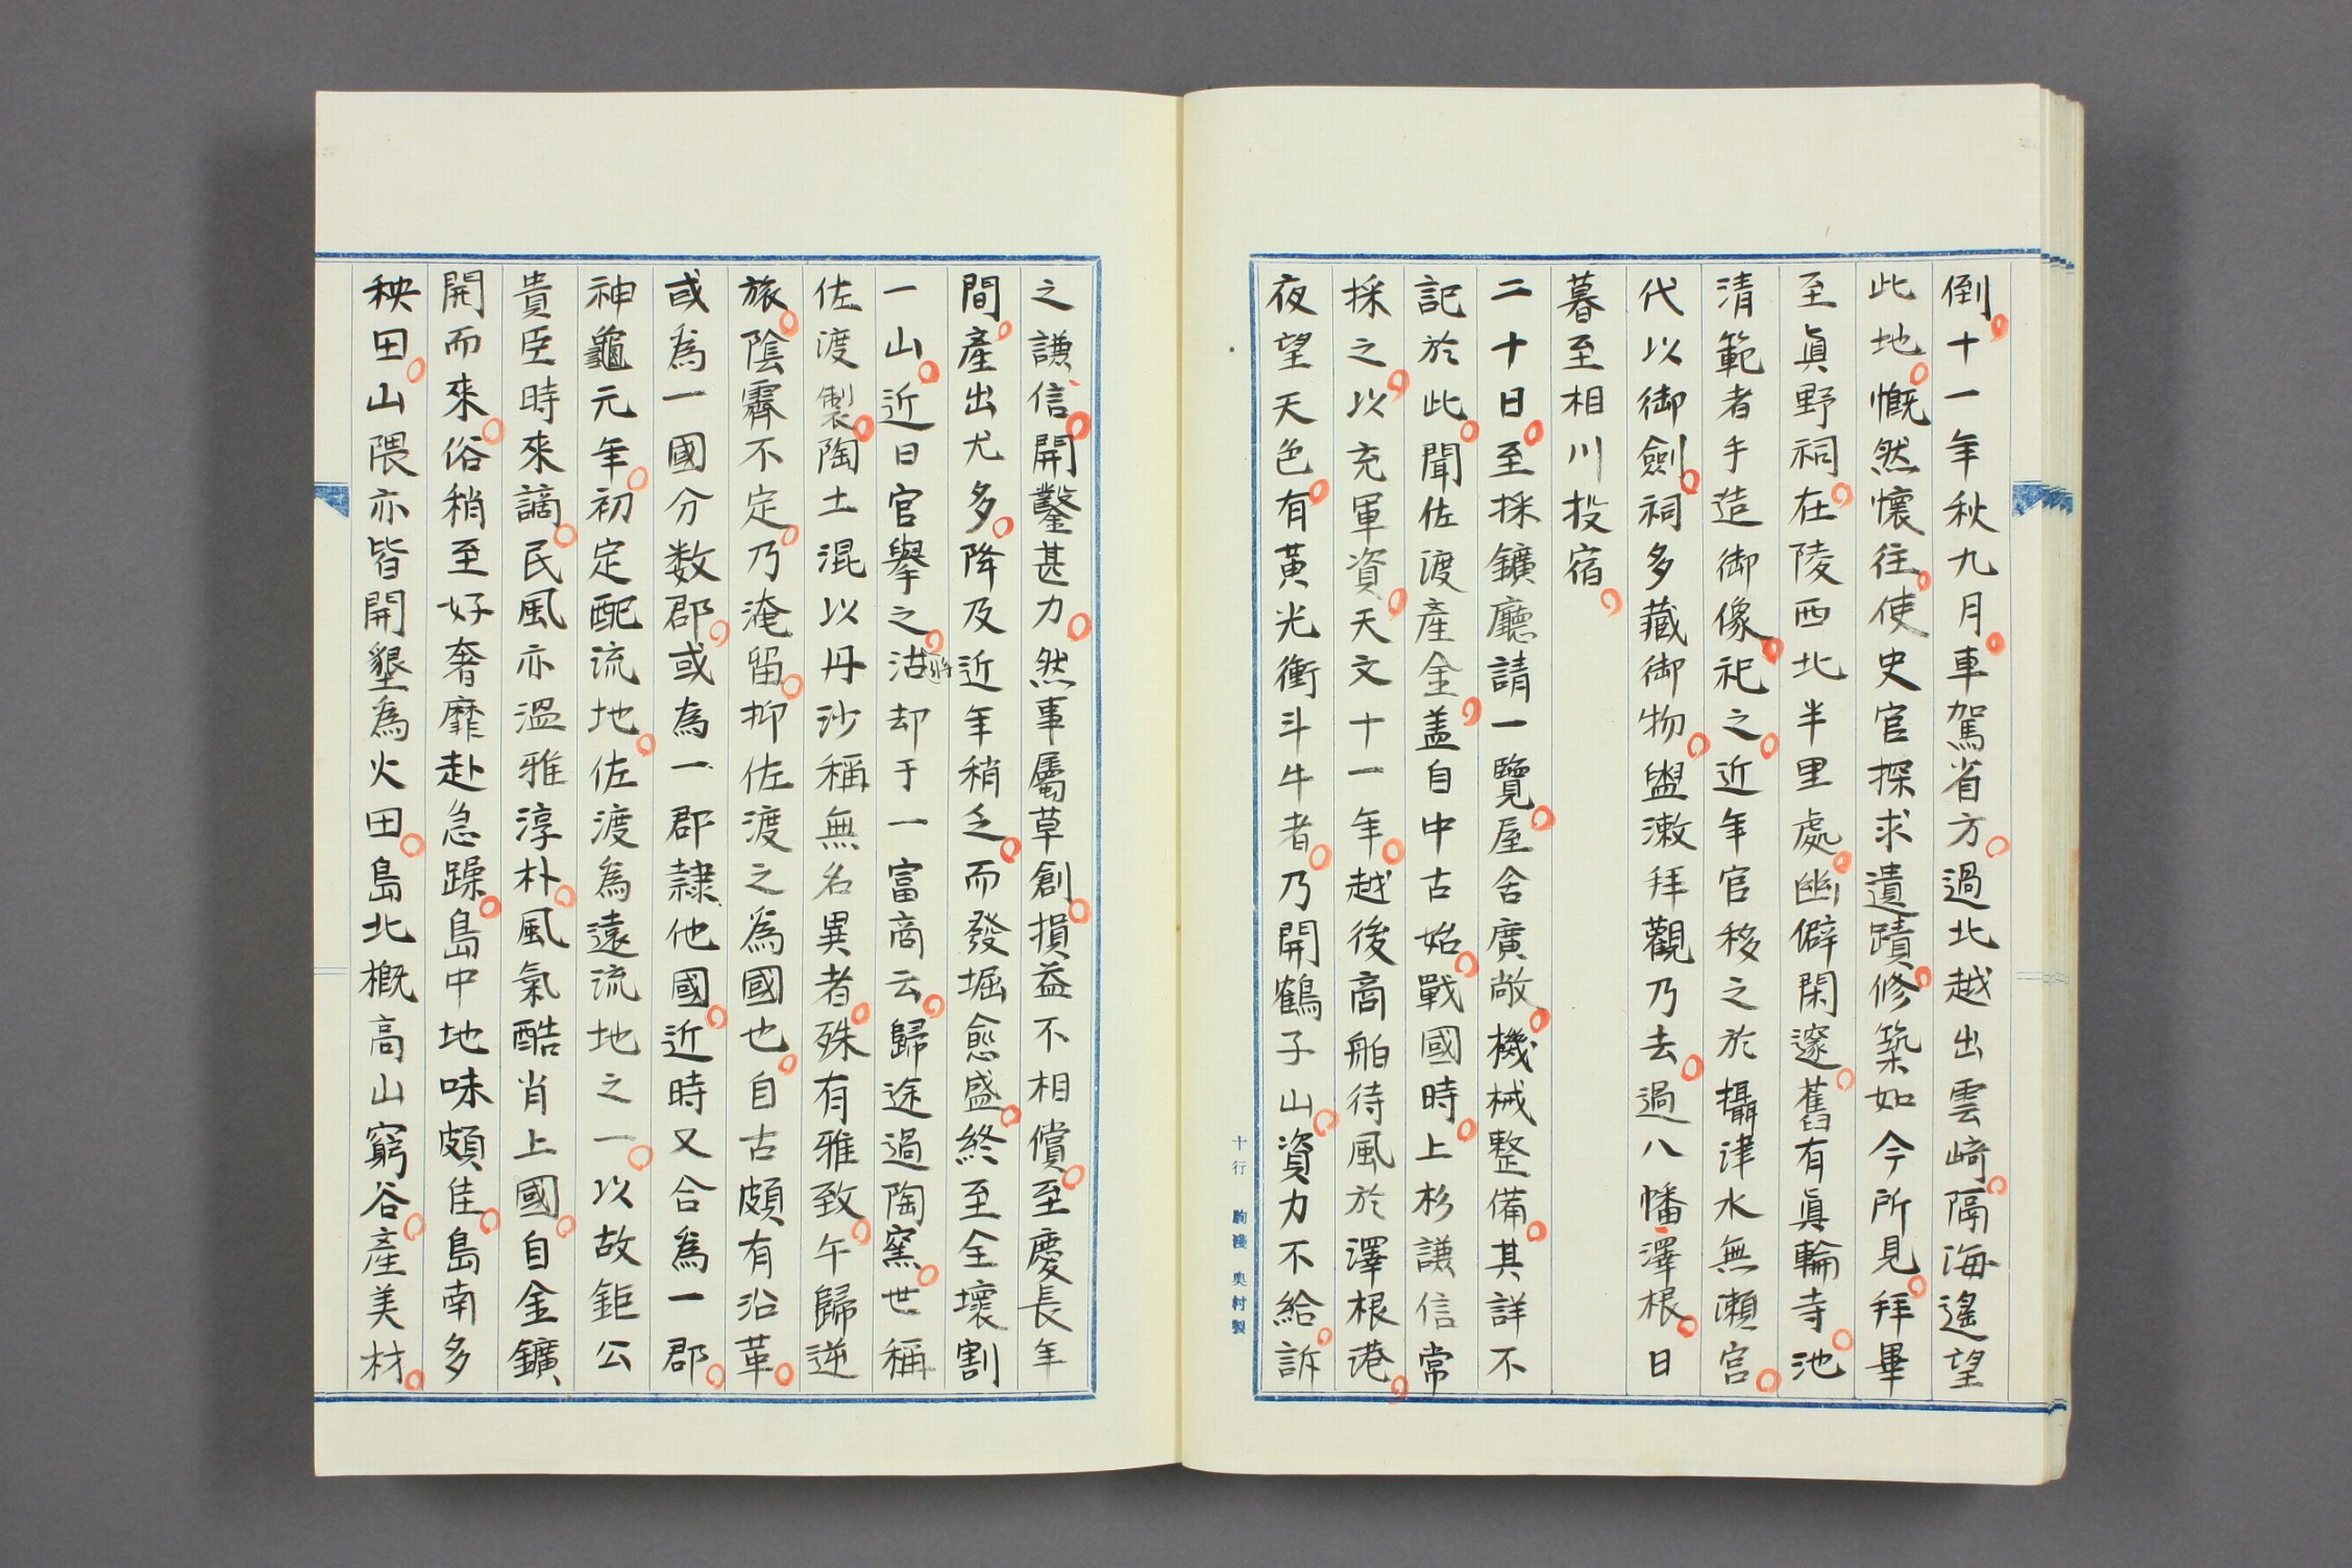 倒十一年秋九月車駕省方過北越出雲崎隔海遙望
此地慨然懷往使史官探求遺蹟修築如今所見拜畢
至眞野祠在陵西北半里處幽僻閑邃舊有眞輪寺池
清範者手造御像祀之近年官移之於攝津水無瀬宮
代以御劍祠多藏御物盥漱拜觀乃去過八幡澤根日
暮至相川投宿
二十日至採鑛廳請一覽屋舍廣敞機械整備其詳不
記於此聞佐渡產金盖自中古始戰國時上杉謙信常
採之以充軍資天文十一年越後商舶待風於澤根港
夜望天色有黃光衝斗牛者乃開鶴子山資力不給訴
十行 奥村製
之謙信開鑿甚力然事屬草創損益不相償至慶長年
間產出尤多降及近年稍乏而發堀愈盛終至全壞割
一山近日官擧之沽却于一富商云歸途過陶窯世稱
將
佐渡製陶土混以丹沙稱無名異者殊有雅致午歸逆
旅陰霽不定乃淹留抑佐渡之為國也自古頗有沿革
或為一國分数郡或為一郡隷他國近時又合為一郡
神龜元年初定配流地佐渡為遠流地之一以故鉅公
貴臣時來謫民風亦溫雅淳朴風氣酷肖上國自金鑛
開而來俗稍至好奢靡赴急躁島中地味頗佳島南多
秧田山隈亦皆開墾為火田島北概高山窮谷產美材